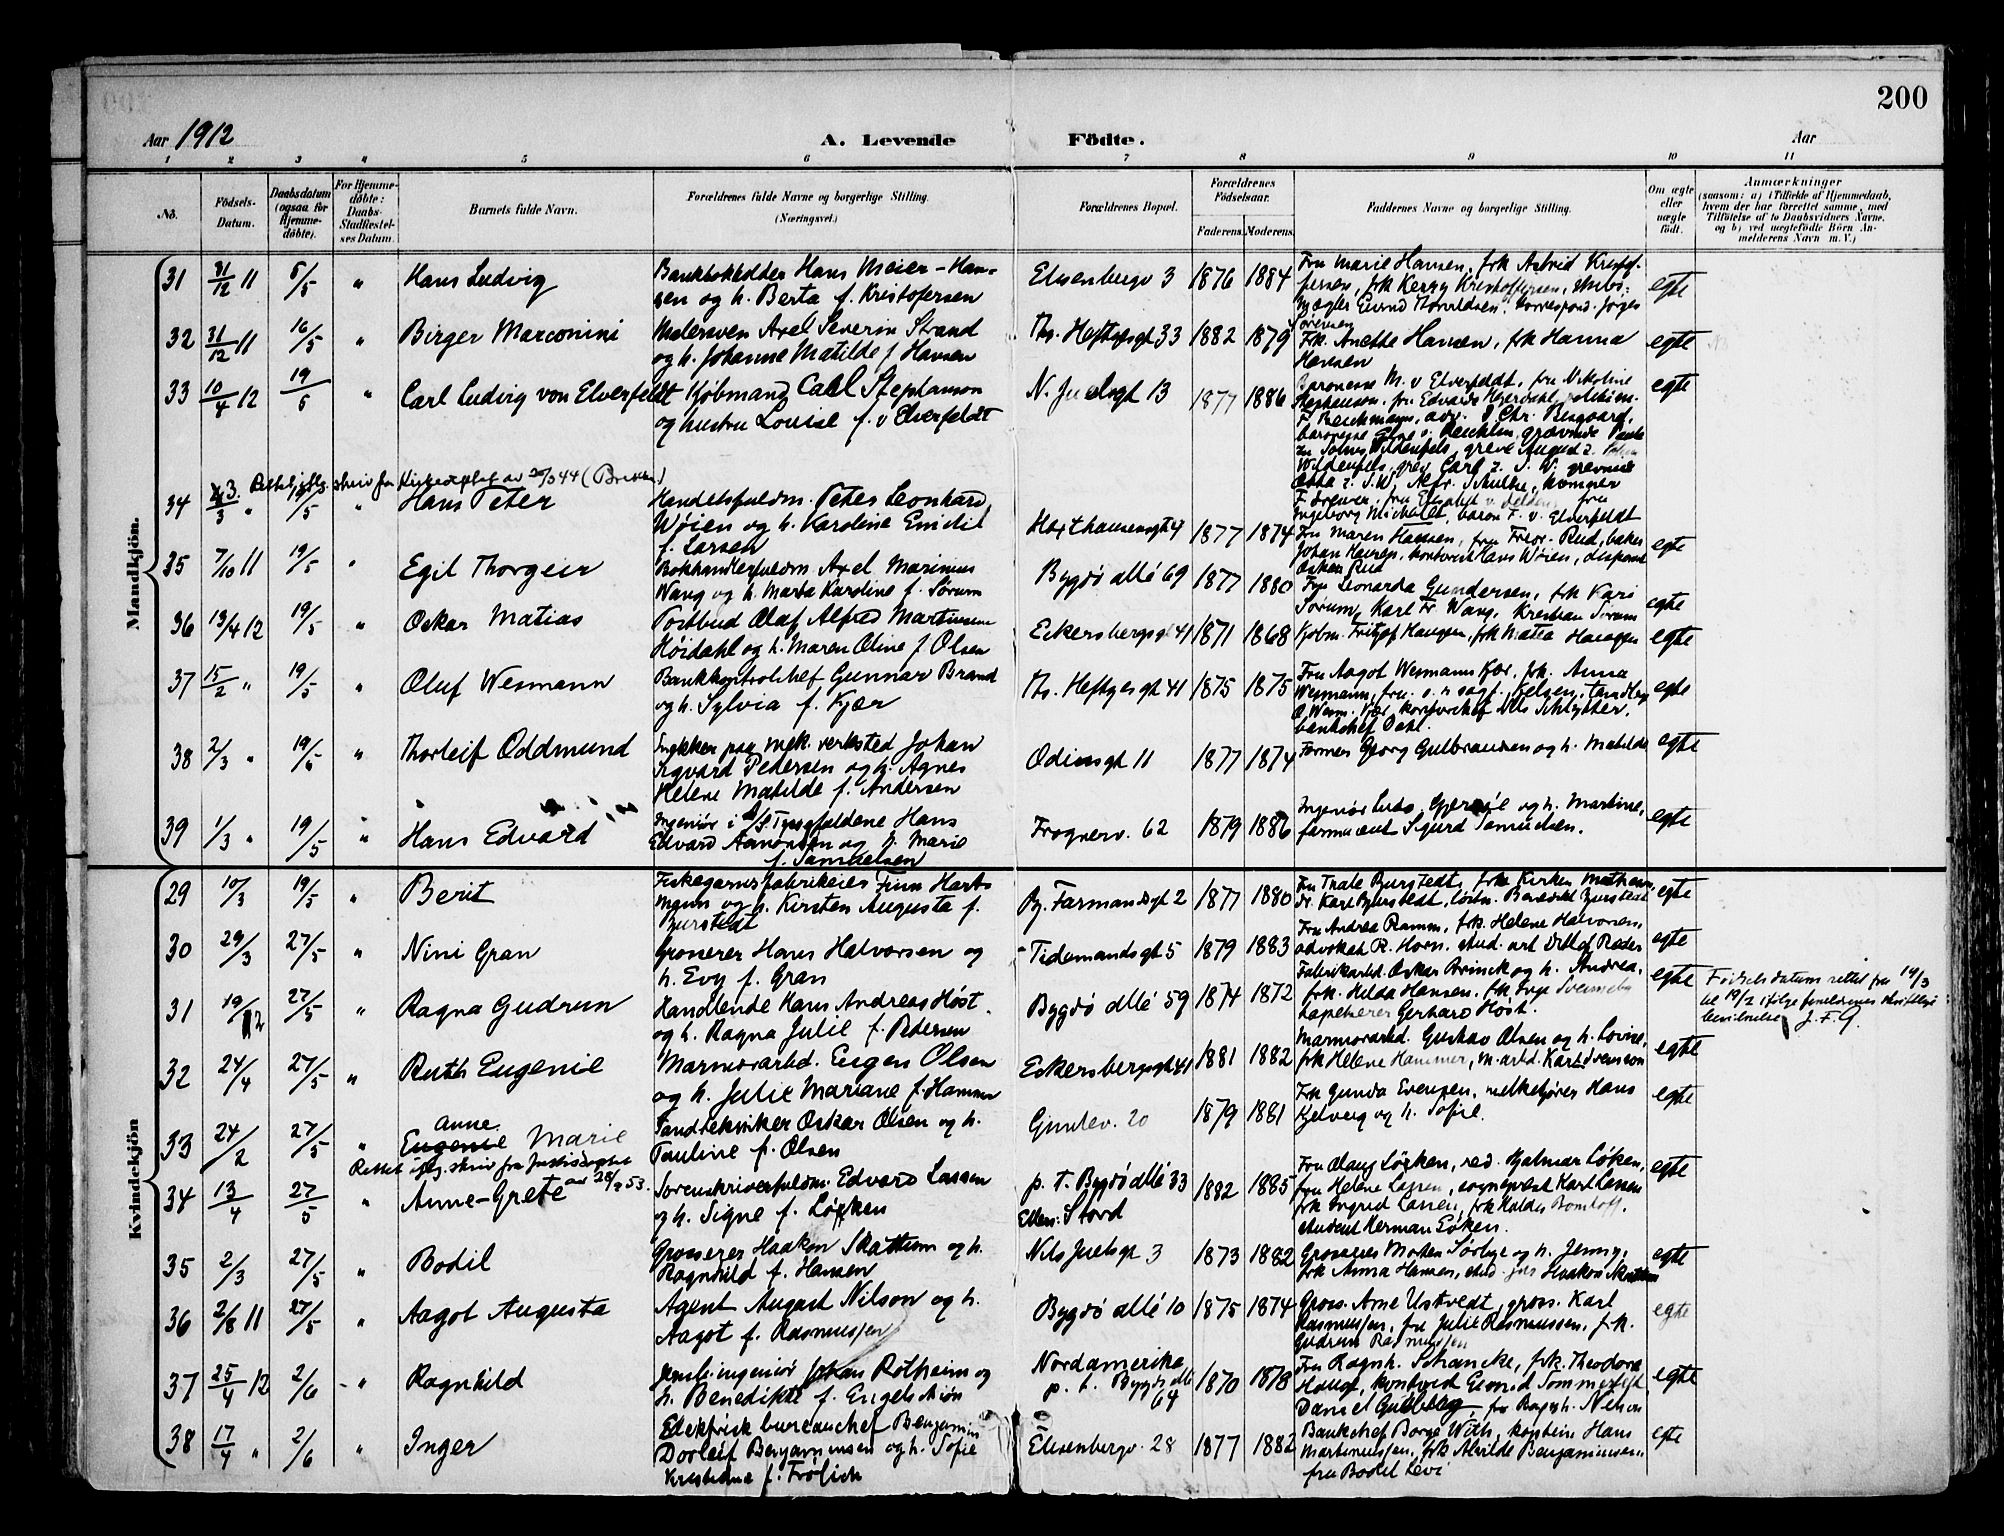 200
Aar 1912 A. Levende Födte. Aar
1 2 3 4 5 6 7 8 9 10 11
No. Födsels-Datum. Daabsdatum (ogsaa for Hjemme-döbte). For Hjemme-döbte: Daabs-Stadfæstel-ses Datum. Barnets fulde Navn. Forældrenes fulde Navne og borgerlige Stilling. (Næringsvei.) Forældrenes Bopæl. Forældrenes Födselsaar. Faderens. Moderens. Faddernes Navne og borgerlige Stilling. Om ægte eller uægte födt. Anmærkninger
(saasom: a) i Tilfælde af Hjemmedaab, hvem der har forrettet samme, med Tilföielse af to Daabsvidners Navne, og b) ved uægtefödte Börn An-melderens Navn m. V.)
Mandkjön.
31 31/12 11 5/5 " Hans Ludvig Bankbokholder Hans Meier-Han- Elisenbergv 3 1876 1884 Fru Marie Hansen, frk Astrid Kristof- egte
sen og h. Berta f. Kristofersen fersen, frk Kerry Kristoffersen, skibs-
mægler Eivind Thorvldsen, korrespond. Jørges
Sørensen
32 31/12 11 16/5 " Birger Marconini Malersven Axel Severin Strand Th. Heftyesgt 33 1882 1879 Frk. Anette Hansen, frk Hanna egte
og h. Johanne Matilde f. Hansen Hansen
33 10/4 12 19/5 " Carl Ludvig von Elverfeldt Kjøbmand Carl Stephanson N. Juelsgt 13 1877 1886 Baronesse M. v Elverfeldt, fru Nikoline egte
og hustru Louise f. v Elverfeldt Stephanson, fru Edvarda Hjerdahl,
F. Beichmann, adv. Chr. Besgaard,
zu Solms Wildenfels, greve August z.
Wildenfels, grev Carl z. S. W. grevinde
Ingeborg Michelet, baron F. v. Elverfeldt
Rettet iflg. skriv fra Kirkedeptet av 20/3 44
34 3/3 " 19/5 " Hans Peter Handelsfuldm. Peter Leonhard Haxthausensgt 4 1877 1874 Fru Maren Hansen, fru Fredr. Rud, baker egte
Wøien og h. Karoline Emilie Johan Hansen, kontorist Hans Wøien, disponent
f. Larsen Oskar Rud
35 7/10 11 19/5 " Egil Thorgeir Bokhandlerfuldm. Axel Marinius Bygdø allé 69 1877 1880 Fru Leonarda Gundersen, frk Kari egte
Wang og h. Marta Karoline f. Sørum Sørum, Karl Fr. Wang, Kristian Sørum
36 13/4 12 19/5 " Oskar Matias Postbud Olaf Alfred Martinsen Eckersbergsgt 41 1871 1868 Kjøbm. Fritjof Haugen, frk Matea Haugen egte
Høidahl og h. Maren Oline f. Olsen
37 15/2 " 19/5 " Oluf Wesmann Bankkontrolchef Gunnar Brand Th. Heftyesgt 41 1875 1875 Fru Aagot Wesmann Kjær, frk. Anna egte
og h. Sylvia f. Kjær Wesmann, fru o.r.sagf. Nelsen, tandlæg
O. Wesm. Kjær, kontorchef Nils Schlytter,
bankchef Dahl.
38 2/3 " 19/5 " Thorleif Oddmund Trykker paa mek. verksted Johan Odinsgt 11 1877 1874 Former Georg Gulbrandsen og h. Matilde egte
Sigvard Pedersen og h. Agnes
Helene Matilde f. Andersen
39 1/3 " 19/5 " Hans Edvard Ingeniør i A/S Tyssefaldene Hans Frognerv. 62 1879 1886 Ingeniør Ludv. og h. Martine, egte
Edvard Aanonsen og h. Marie farmaceut Sigurd Samuelsen.
f. Samuelsen
Kvindekjön
29 10/3 19/5 " Berit Fiskegarnsfabrikeier Finn Hart- Ø. Farmandsgt 2 1877 1880 Fru Thale Bjurstedt, frk Kirken Mathiesen, egte
mann og h. Kirsten Augusta f. Dr. Karl Bjurstedt, løitn. Benedikt Bjurstedt
Bjurstedt
30 29/3 27/5 " Nini Gran Grosserer Hans Halvorsen og Tidemandsgt 5 1879 1883 Fru Andrea Ramm, frk. Helene Halvorsen, egte
h. Evy f. Gran advokat R. Horn, stud. art Ditlef Reder
31 19/2 12 27/5 " Ragna Gudrun Handlende Hans Andreas Høst Bygdø allé 59 1874 1872 Fabrikarbd. Oskar Brinck og h. Andrea, egte Födselsdatum rettet fra 19/3
og h. Ragna Julie f. Petersen frk. Hilda Hansen, frk. Inga til 19/2 ifølge forældrenes skriftlige
Tapetserer Gerhard Høst. J. F. G.
32 24/4 27/5 " Ruth Eugenie Marmorarbd. Eugen Olsen Eckersbergsgt 41 1881 1882 Marmorarbd. Gustav Olsen og h. Lovine, egte
og h. Julie Mariane f. Hammer frk Helene Hammer, m.arbd. Karl Svensson
33 24/2 27/5 " Anne Eugenie Marie Landtekniker Oskar Olsen og h. Gimlev. 20 1879 1881 Frk Gunda Evensen, melkekjører Hans egte
Pauline f. Olsen Kjelverg og h. Sofie.
Rettet iflg. skriv fra Justisdeptet av 28/2 53.
34 13/4 27/5 " Anne-Grete Sorenskriverfuldm. Edvard Lassen p. t. Bygdø allé 33 1882 1885 Fru Olaug Løken, red. Hjalmar Løken, egte
og h. Signe f. Løken Ellers: Stord fru Helene Lassen, sogneprest Karl Lassen
frk Ingrid Lassen, frk Haldis Bomhoff,
student Herman Løken.
35 2/3 27/5 " Bodil Grosserer Haakon Skattum og h. Nils Juelsgt 3 1873 1882 Grosserer Morten Sørbye og h. Jenny, egte
Ragnhild f. Hansen frk Anna Hansen, stud. jur Haakon Skattum
36 2/8 11 27/5 " Aagot Augusta Agent August Nilson og h. Bygdø allé 10 1875 1874 Gross. Arne Ustvedt, gross. Karl egte
Aagot f. Rasmussen Rasmussen, fru Julie Rasmussen, frk.
Gudrun Rasmussen
37 25/4 12 2/6 " Ragnhild Kemiingeniør Johan Rotheim og Nordamerika 1870 1878 Fru Ragnh. Schancke, frk. Theodora egte
h. Benedikte f. Engelschiøn p. t. Bygdø allé 64 Hauge, kontorist Eivind Sommerfelt
Daniel Gulberg, fru Ragnh. Nelson
38 17/4 " 2/6 " Inger Elektrisk bureauchef Benjamin Elisenbergv. 28 1877 1882 Bankchef Børge With, kaptein Hans egte
Dorleif Benjaminsen og h. Sofie Martinussen, frk Alvilde Benjaminsen,
Kristiane f. Frölich fru Bodil Levi